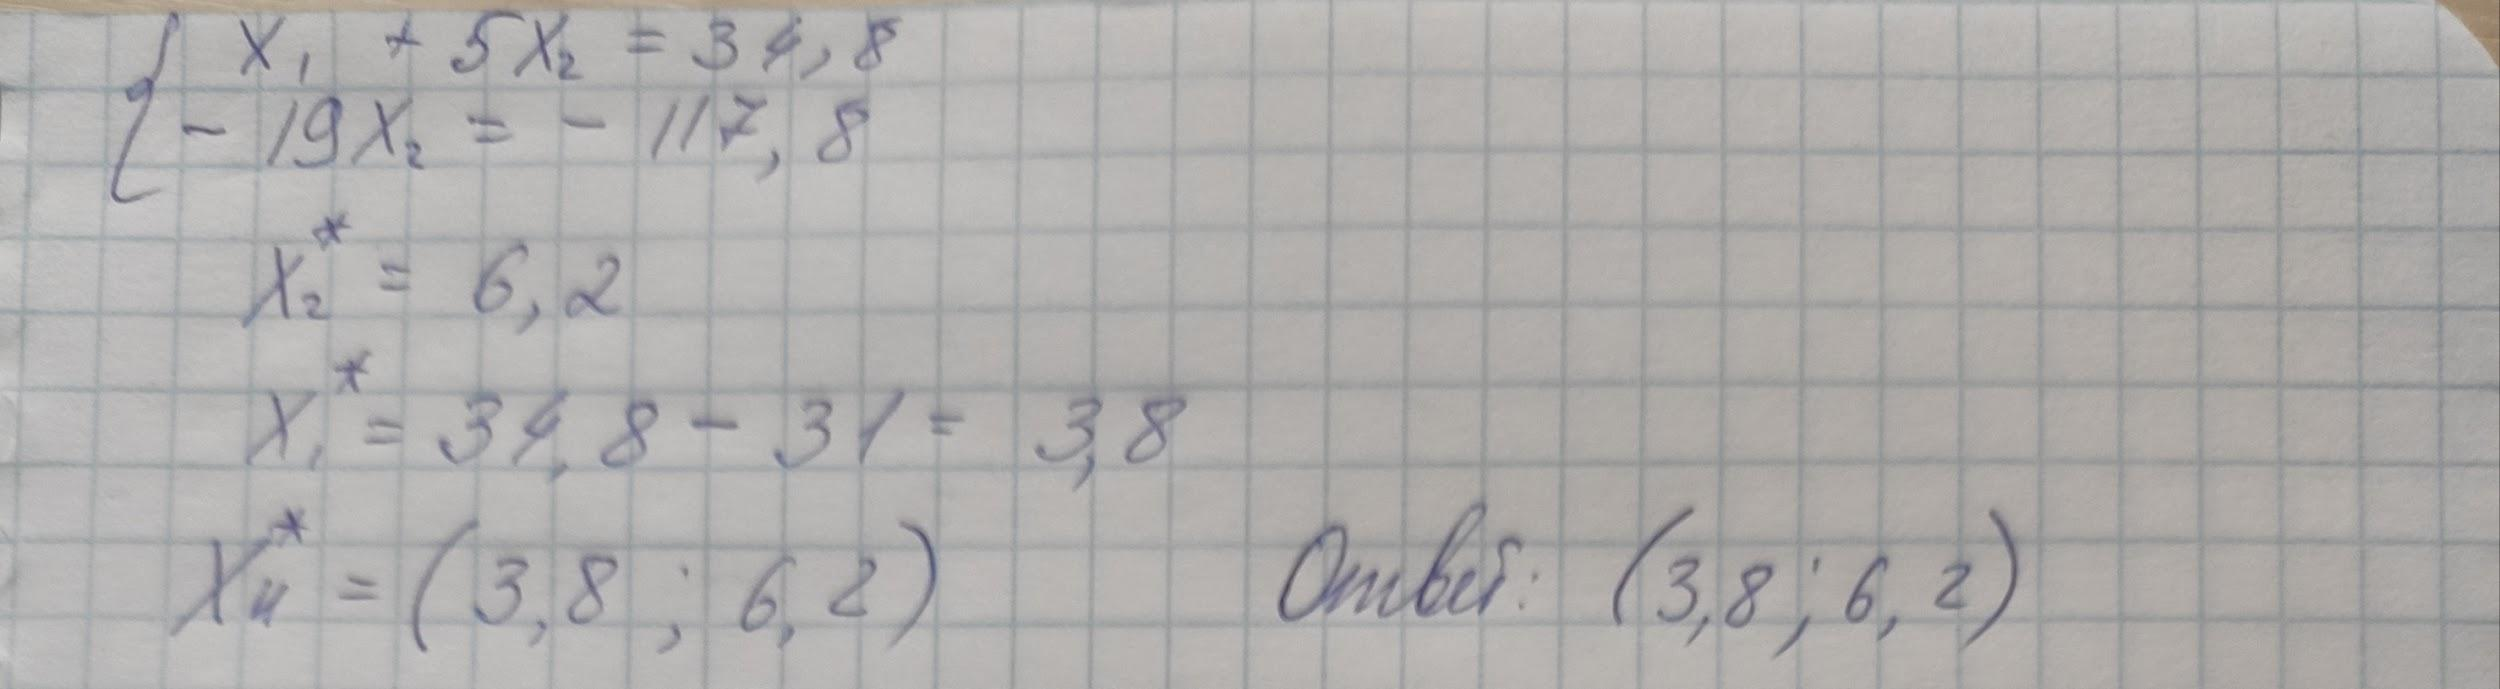 { x₁ + 5x₂ = 34,8
- 19x₂ = - 117,8
x₂* = 6,2
x₁* = 34,8 - 31 = 3,8
Xч* = (3,8 ; 6,2) Ответ: (3,8 ; 6,2)